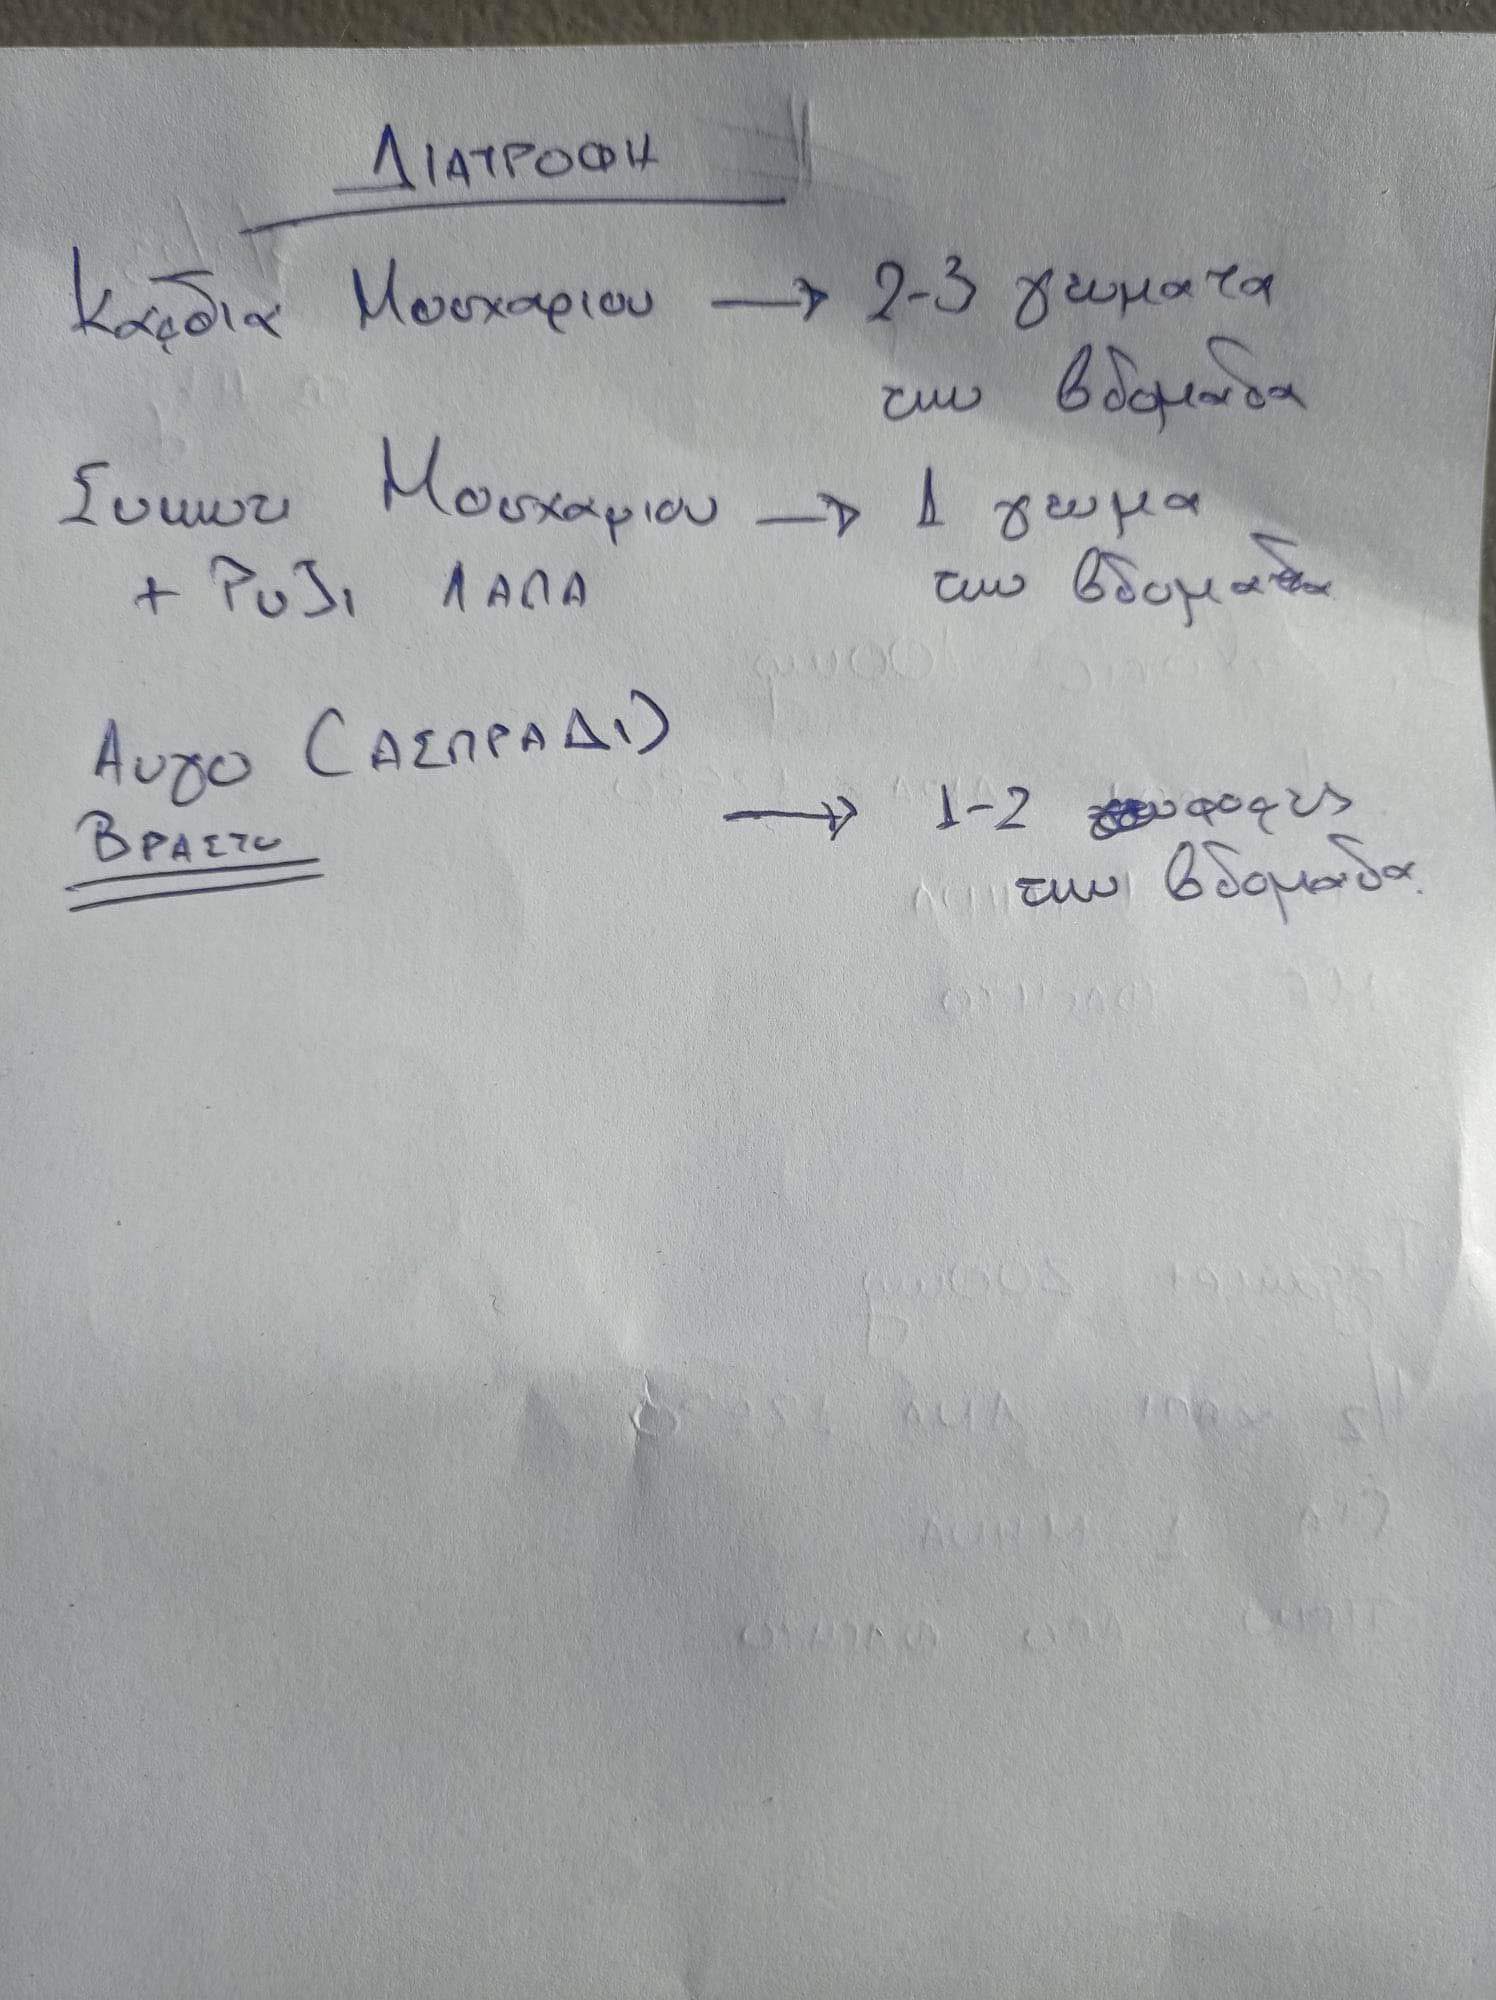 ΔΙΑΤΡΟΦΗ
Καρδια Μοσχαριου → 2-3 γευματα
την βδομαδα
Συκωτι Μοσχαριου → 1 γευμα
+ Ρυζι ΛΑΠΑ την βδομαδα
Αυγο (ΑΣΠΡΑΔΙ)
ΒΡΑΣΤΟ → 1-2 φορες
την βδομαδα.